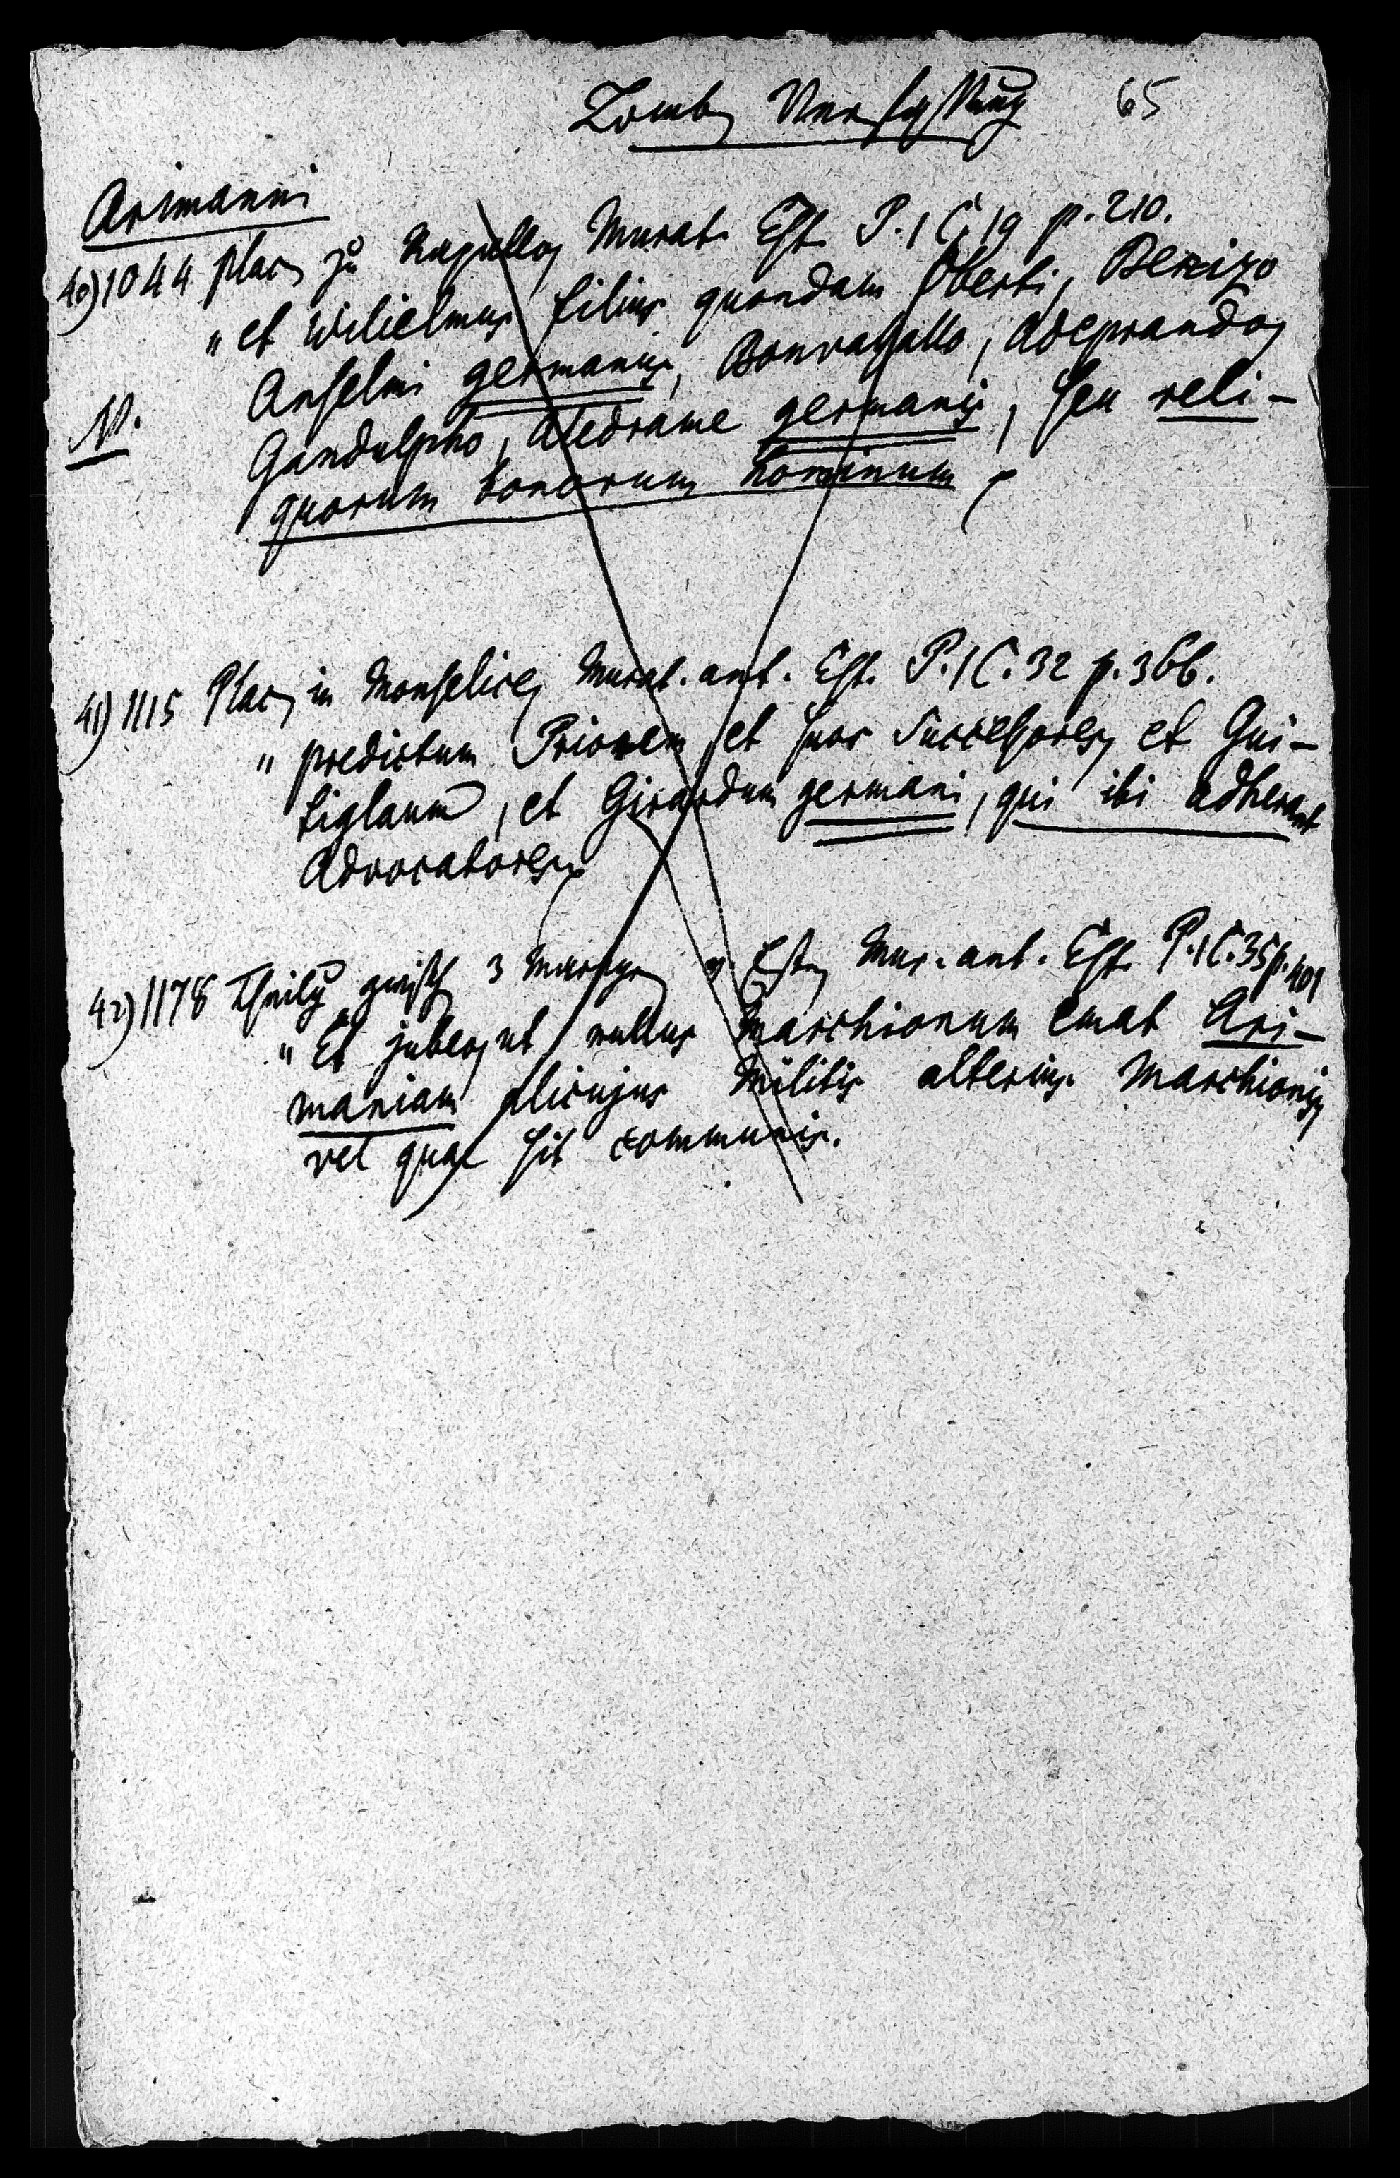 Lomb Verfassung 65
Arimanni
40) 1044 plac zu Rapallo Murat. Est. P. 1 C. 19 p. 210.
" et Wilielmus filius quondam Oberti, Benizo
Anselmi germanis, Bonvassallo, Adeprando
N. Gandulpho, Aledrame germanis, seu reli-
quorum bonorum hominum
41) 1115 Plac in Monselice Murat. ant. Est. P. 1 C. 32 p. 366.
" predictum Priorem et suos successores et Gui-
tiglaum, et Girardum germani, qui ibi adherant
Advocatores
42) 1178 Theilg zwisch 3 Markgr v Este Mur. ant. Est. P. 1 C. 35 p. 401
" Et jubeo ut nullus Marchionum emat Ari-
maniam alicujus Militis alterius Marchionis
vel quae sit communis.